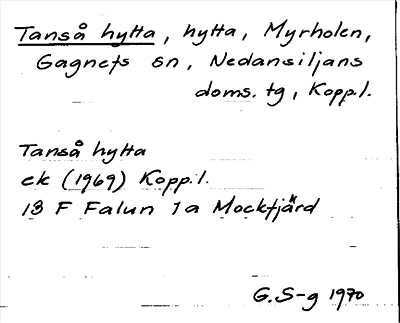 Tanså hytta, hytta, Myrholen,
Gagnefs sn, Nedansiljans
doms. tg, Kopp.l.
Tanså hytta
ek (1969) Kopp.l.
13 F Falun 1a Mockfjärd
G.S-g 1970